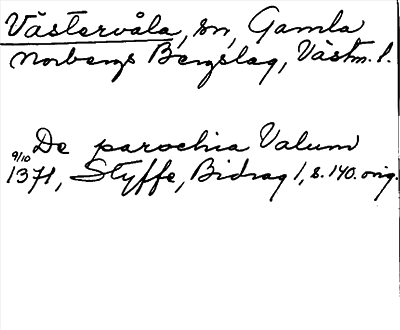 Västervåla, sn, Gamla
Norbergs Bergslag, Västm. l.
De parochia Valum
9/10 1371, Styffe, Bidrag 1, s. 140. orig.